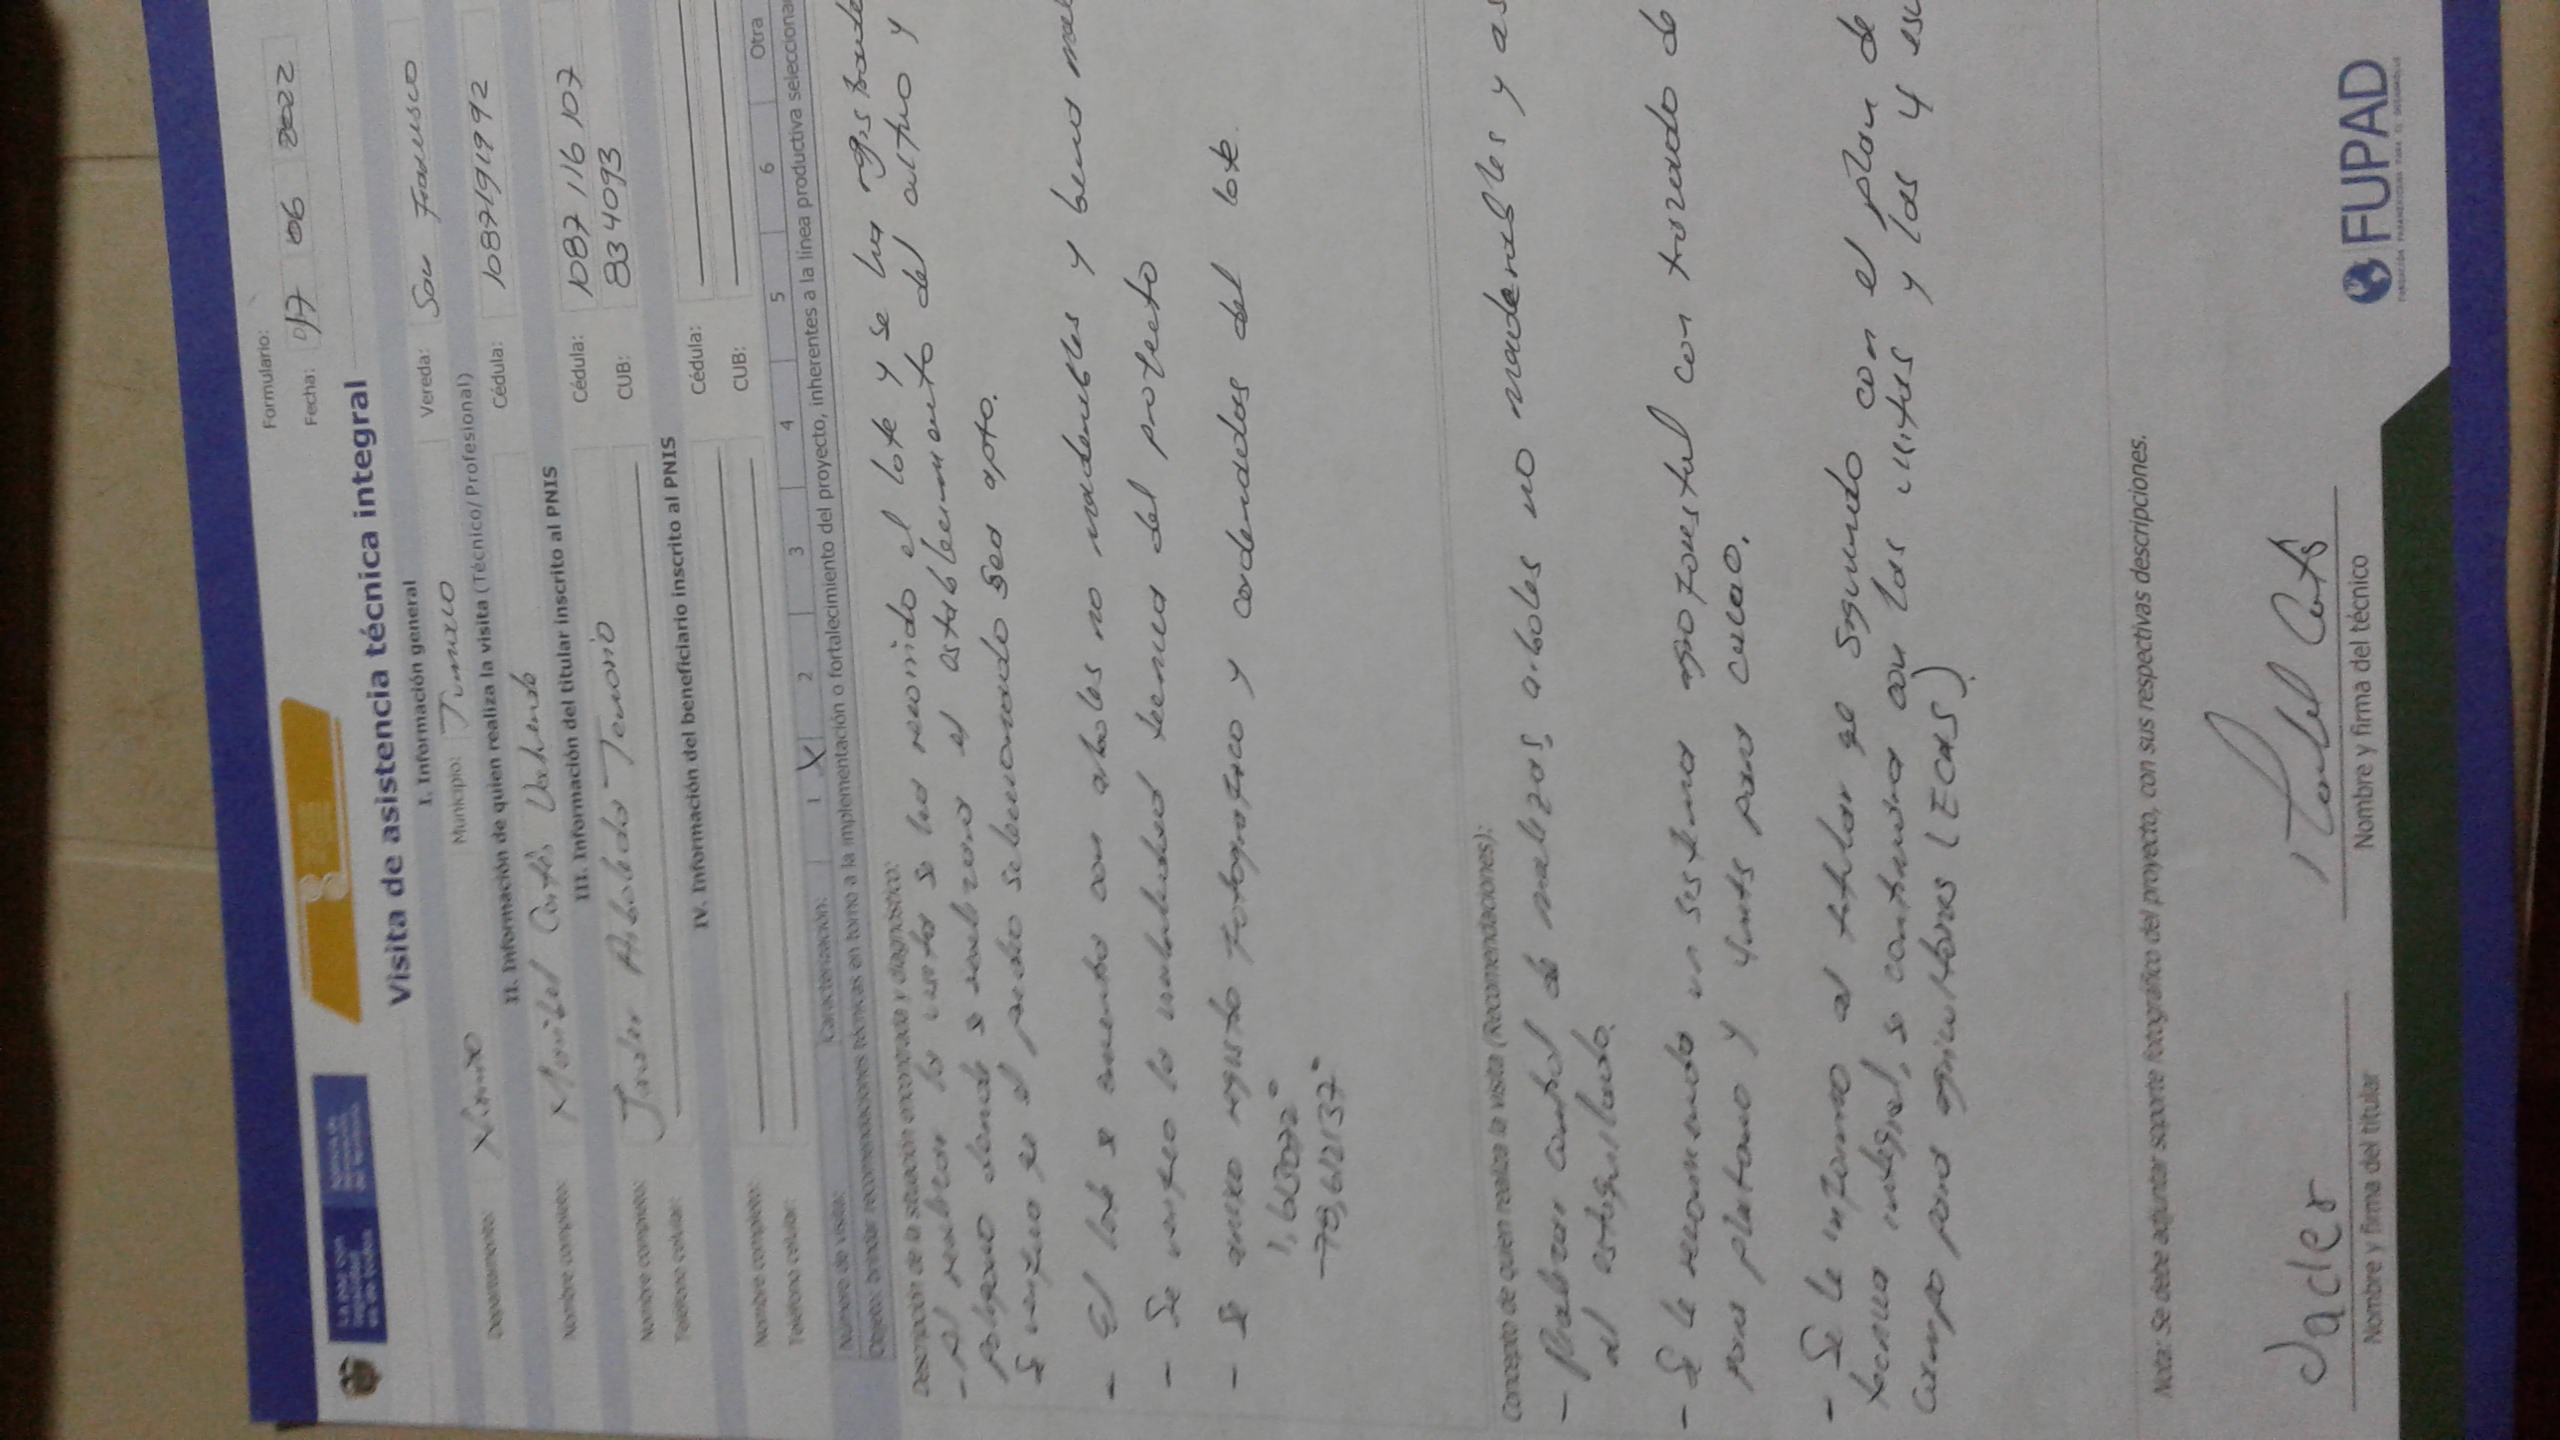 Formulario:
Fecha: 017 06 2022
Visita de asistencia técnica integral
I. Información general
Departamento: Nariño Municipio: Tumaco Vereda: San Francisco
II. Información de quien realiza la visita (Técnico/Profesional)
Nombre completo: Cortés Cédula: 1087191992
III. Información del titular inscrito al PNIS
Nombre completo: Jader Arboleda Tenorio Cédula: 1087 116 107
Teléfono celular: CUB: 834093
IV. Información del beneficiario inscrito al PNIS
Nombre completo: Cédula:
Teléfono celular: CUB:
Número de visita: Caracterización: 1 X 2 3 4 5 6 Otra
Objeto: brindar recomendaciones técnicas en torno a la implementación o fortalecimiento del proyecto, inherentes a la línea productiva selecciona
Descripción de la situación encontrada y diagnóstico:
- Al realizar la visita se ha recorrido el lote y se ha
poligono donde se realizara el establecimiento del cultivo y
Se verifico q el predio seleccionado sea apto.
- El lote se encuentra con arboles no maderables y
- Se verifico la viabilidad tecnica del proyecto
- Se anexa registro fotografico y cordenadas del lote.
1,665072°
-78,612137°
Concepto de quien realiza la visita (Recomendaciones):
- Realizar control de malezas, arboles no maderables y
al
- Se le recomienda un sistema agroforestal con trazado de
para platano y 4mts para cacao.
- Se le informa al titular q Siguiendo con el plan de
tecnica integral, se continuara con las visitas y las 4
Campo para agricultores (ECAS)
Nota: Se debe adjuntar soporte fotográfico del proyecto, con sus respectivas descripciones.
Jader
Nombre y firma del titular
Cortés
Nombre y firma del técnico
FUPAD